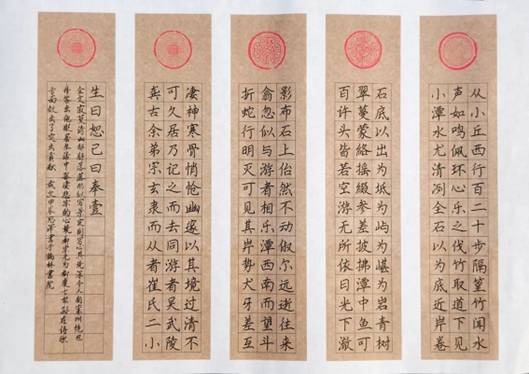 从小丘西行百二十步隔篁竹闻水
声如鸣佩环心乐之伐竹取道下见
小潭水尤清冽全石以为底近岸卷
石底以出为坻为屿为嵁为岩青树
翠蔓蒙络摇缀参差披拂潭中鱼可
百许头皆若空游无所依日光下澈
影布石上佁然不动俶尔远逝往来
翕忽似与游者相乐潭西南而望斗
折蛇行明灭可见其岸势犬牙差互
凄神寒骨悄怆幽邃以其境过清不
可久居乃记之而去同游者吴武陵
龚古余弟宗玄隶而从者崔氏二小
生曰恕己曰奉壹
全文寂莫清幽